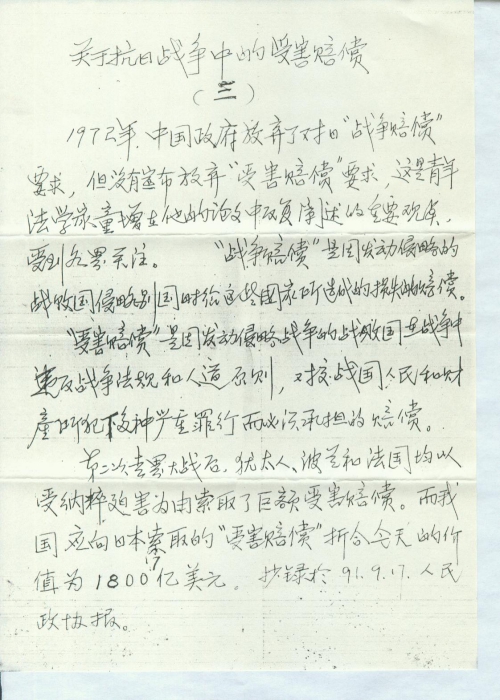 关于抗日战争中的受害赔偿
（三）
1972年，中国政府放弃了对日“战争赔偿”
要求，但没有宣布放弃“受害赔偿”要求，这是青年
法学家童增在他的论文中反复阐述的主要观点，
受到各界关注。 “战争赔偿”是因发动侵略的
战败国侵略别国时给这些国家所造成的损失的赔偿。
“受害赔偿”是因发动侵略战争的战败国在战争中
违反战争法规和人道原则，对交战国人民和财
产所犯下的种种严重罪行而必须承担的赔偿。
第二次世界大战后，犹太人、波兰和法国均以
受纳粹迫害为由索取了巨额受害赔偿。而我
国应向日本索取的“受害赔偿”折合今天的价
值为1800亿美元。 抄录于91.9.17.人民
政协报。